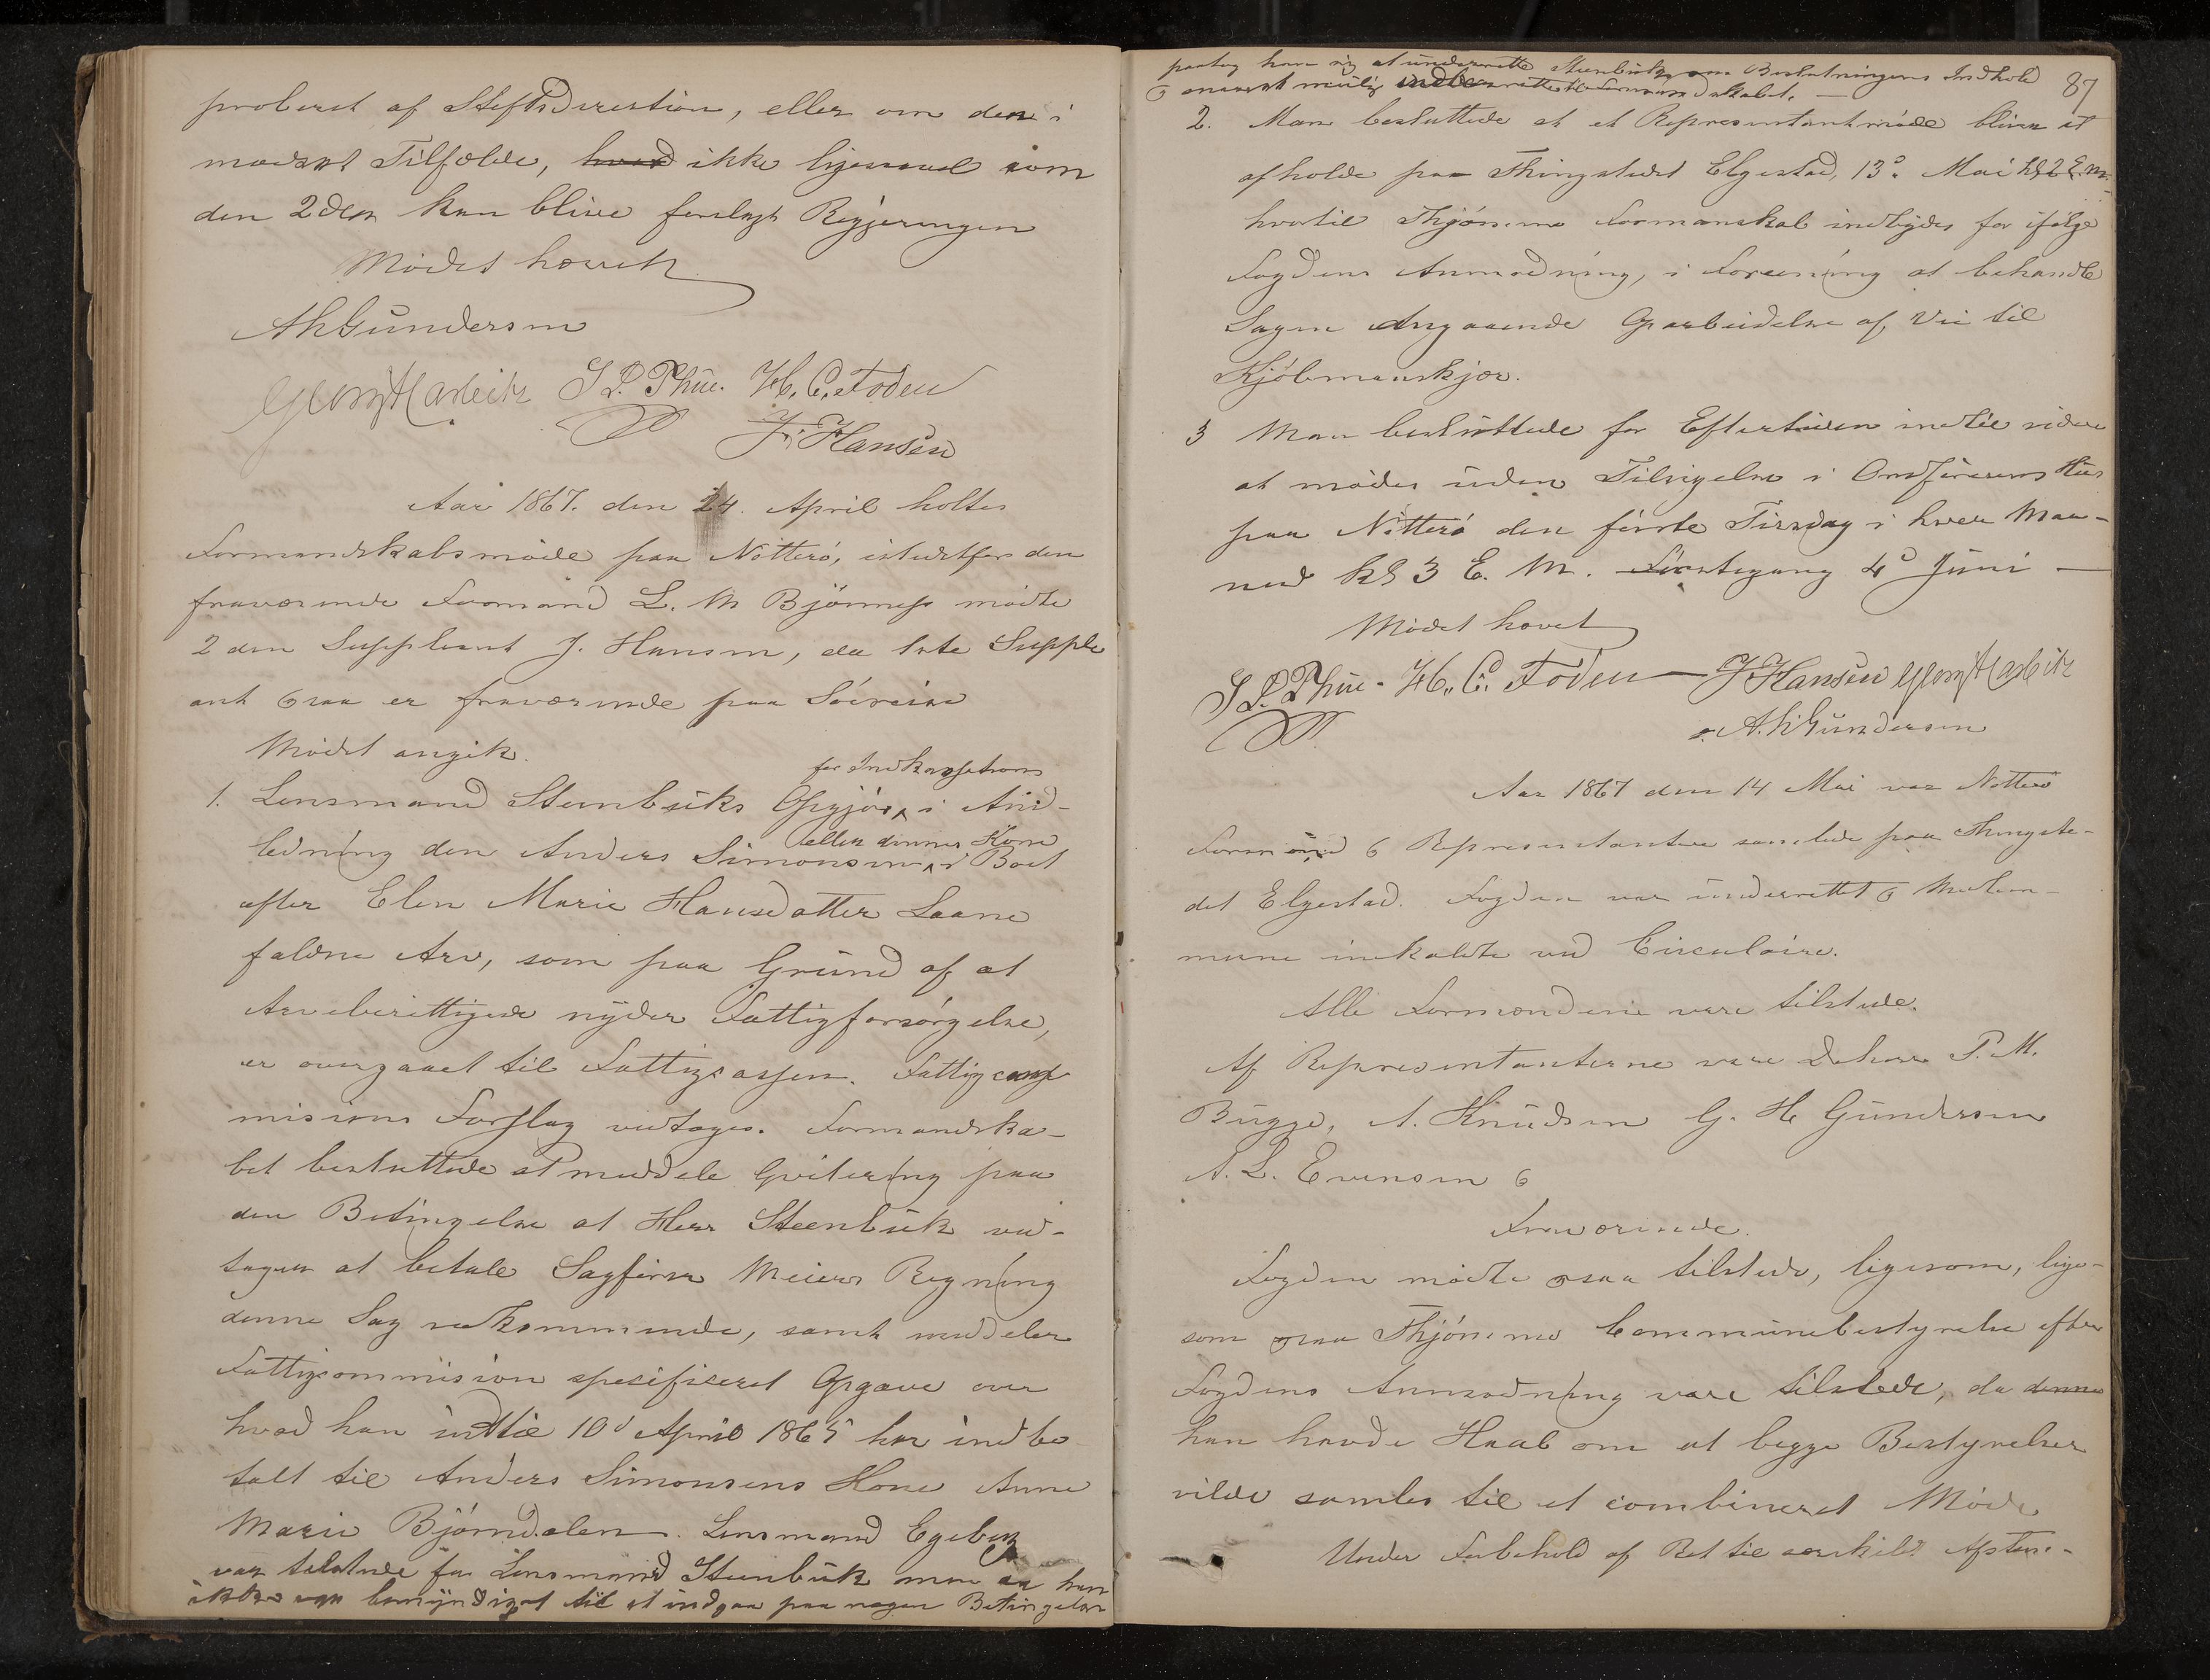 proberet af Stiftsdirection, eller om den i
modsat Tilfælde, hvad ikke ligesaavel som
den 2den kan blive forelagt Regjeringen
Mødet hævet
AhGundersen
S L Thue. H. C. Foden
J. Hansen
Aar 1867. den 24. April holtes
Formandskabsmøde paa Nøtterø, istedetfor den
fraværende Formand L. M Bjønness mødte
2den Suppleant J. Hansen, da 1ste Supple
ant osaa er fraværende paa Søreise
Mødet angik.
for Indkassations
1. Lensmand Steenbuks Opgjør i And-
eller dennes Kone
ledning den Anders Simonsen i Boet
efter Elen Marie Hansdatter Laane
faldne Arv, som paa Grund af at
Arveberettigede nyder Fattigforsørgelse,
er overgaaet til Fattigcassen. Fattigcom
misions Forslag vedtages. Formandska-
bet besluttede at meddele Qvitering paa
den Betingelse at Herr Steenbuk ved-
tager at betale Sagfører Meiers Regning
denne Sag vedkommende, samt meddeler
Fattigcommision spesifiseret Opgave over
hvad han indtil 10d April 1865 har indbe
talt til Anders Simonsens Kone Anne
Marie Bjørndalen. Lensmand Egeberg
var tilstede for Lensmand Steenbuk men da han
ikke var bemyndiget til at indgaa paa nogen Betingelse
paatog han sig at underrette Steenbuk om Beslutningens Indhold
o snarest mulig underrette Formandskabet. —
87
2. Man besluttede at et Representantmøde bliver at
afholde paa Thingstedet Elgestad, 13d Mai kl 2 E. M.
hvortil Thjømme Formanskab indbydes for ifølge
Fogdens Anmodning, i Forening at behandle
Sagen Angaaende Oparbeidelse af Vei til
Kjøbmanskjær.
3 Man besluttede for Eftertiden indtil videre
at mødes uden Tilsigelse i Ordførerens Hus
paa Nøtterø den første Tirsdag i hver Maa-
ned kl 3 E. M. Førstegang 4d Juni —
Mødet hævet
S L. Thue - H. C. Foden — J Hansen
A. h Gundersen
Aar 1867 den 14 Mai var Nøtterø
Formænd o Representantere samlede paa Thingste-
det Elgestad. Fogden var underrettet o Medlem-
mene indkaldte ved Circulaire.
Alle Formændene vare tilstede.
Af Representanterne vare Dherr P. M.
Bugge, A. Knudsen G. H Gundersen
A. L. Evensen o
Fraværende.
Fogden mødte osaa tilstede, ligesom, lige-
som osaa Thjømme Communebestyrelse efter
Fogdens Anmodning vare tilstede, da denne
han havde Haab om at begge Bestyrelser
vilde samles til et combineret Møde
Under Forbehold af Ret til særskildt Afstem-